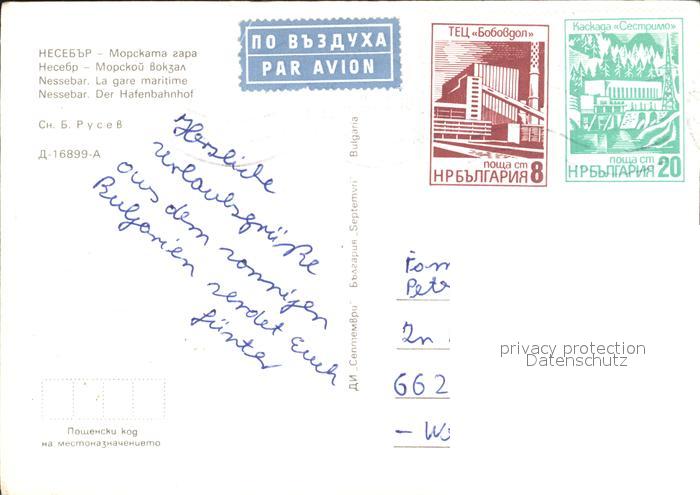 НЕСЕБЪР – Морската гара
Несебр – Морской вокзал
Nessebar. La gare maritime
Nessebar. Der Hafenbahnhof
Сн. Б. Русев
Д-16899-А
ПО ВЪЗДУХА
PAR AVION
ТЕЦ „Бобовдол"
поща ст
НРБЪЛГАРИЯ 8
Каскада „Сестримо"
поща ст
НРБЪЛГАРИЯ 20
Herzliche
Urlaubsgrüße
aus dem sonnigen
Bulgarien sendet Euch
Günter
ДИ „Септември" България „Septemvri" Bulgaria
Fam
Pet
In
662
privacy protection
Datenschutz
Пощенски код
на местоназначението